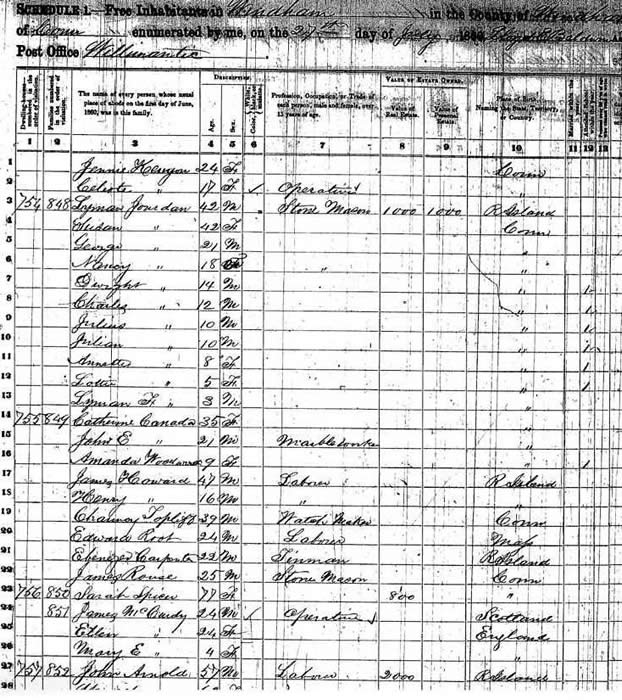 SCHEDULE 1.—Free Inhabitants in Windham in the County of
of Conn enumerated by me, on the day of July
Post Office Willimantic
DESCRIPTION.
VALUE OF ESTATE OWNED.
Dwelling-houses—numbered in the order of visitation.
Families numbered in the order of visitation.
The name of every person whose usual place of abode on the first day of June, 1860, was in this family.
Age.
Sex.
Color,
Profession, Occupation, or Trade of each person, male and female, over 15 years of age.
Value of Real Estate.
Value of Personal Estate.
Place of Birth, Naming the State, Territory, or Country.
1 2 3 4 5 6 7 8 9 10 11 12 13
1 Jennie Kenyon 24 F Conn
2 Celiste " 17 F ✓ Operative "
3 754 848 Lyman Jourdan 42 M Stone Mason 1000 1000 R Island
4 Susan " 42 F Conn
5 George " 21 M "
6 Nancy " 18 " "
7 Dwight " 14 M " 1
8 Charles " 12 M " 1
9 Julius " 10 M " 1
10 Julian " 10 M " 1
11 Annette " 8 F " 1
12 Lottie " 5 F " 1
13 Lyman F " 3 M "
14 755 849 Catherine Canada 35 F "
15 John E " 21 M "
16 Amanda 9 F " 1
17 James Howard 47 M Laborer R Island
18 Henry " 16 M " "
19 Chauncy Topliff 39 M Watch Maker Conn
20 Edward Root 24 M Laborer Mass
21 Ebenezer Carpenter 22 M Tinman R Island
22 James Rouse 25 M Stone Mason Conn
23 756 850 Sarah Spicer 77 F 800 "
24 851 James 24 M ✓ Operative Scotland
25 Ellen " 24 F England
26 Mary E " 4 F "
27 757 852 John Arnold 57 M Laborer 2000 R Island
28